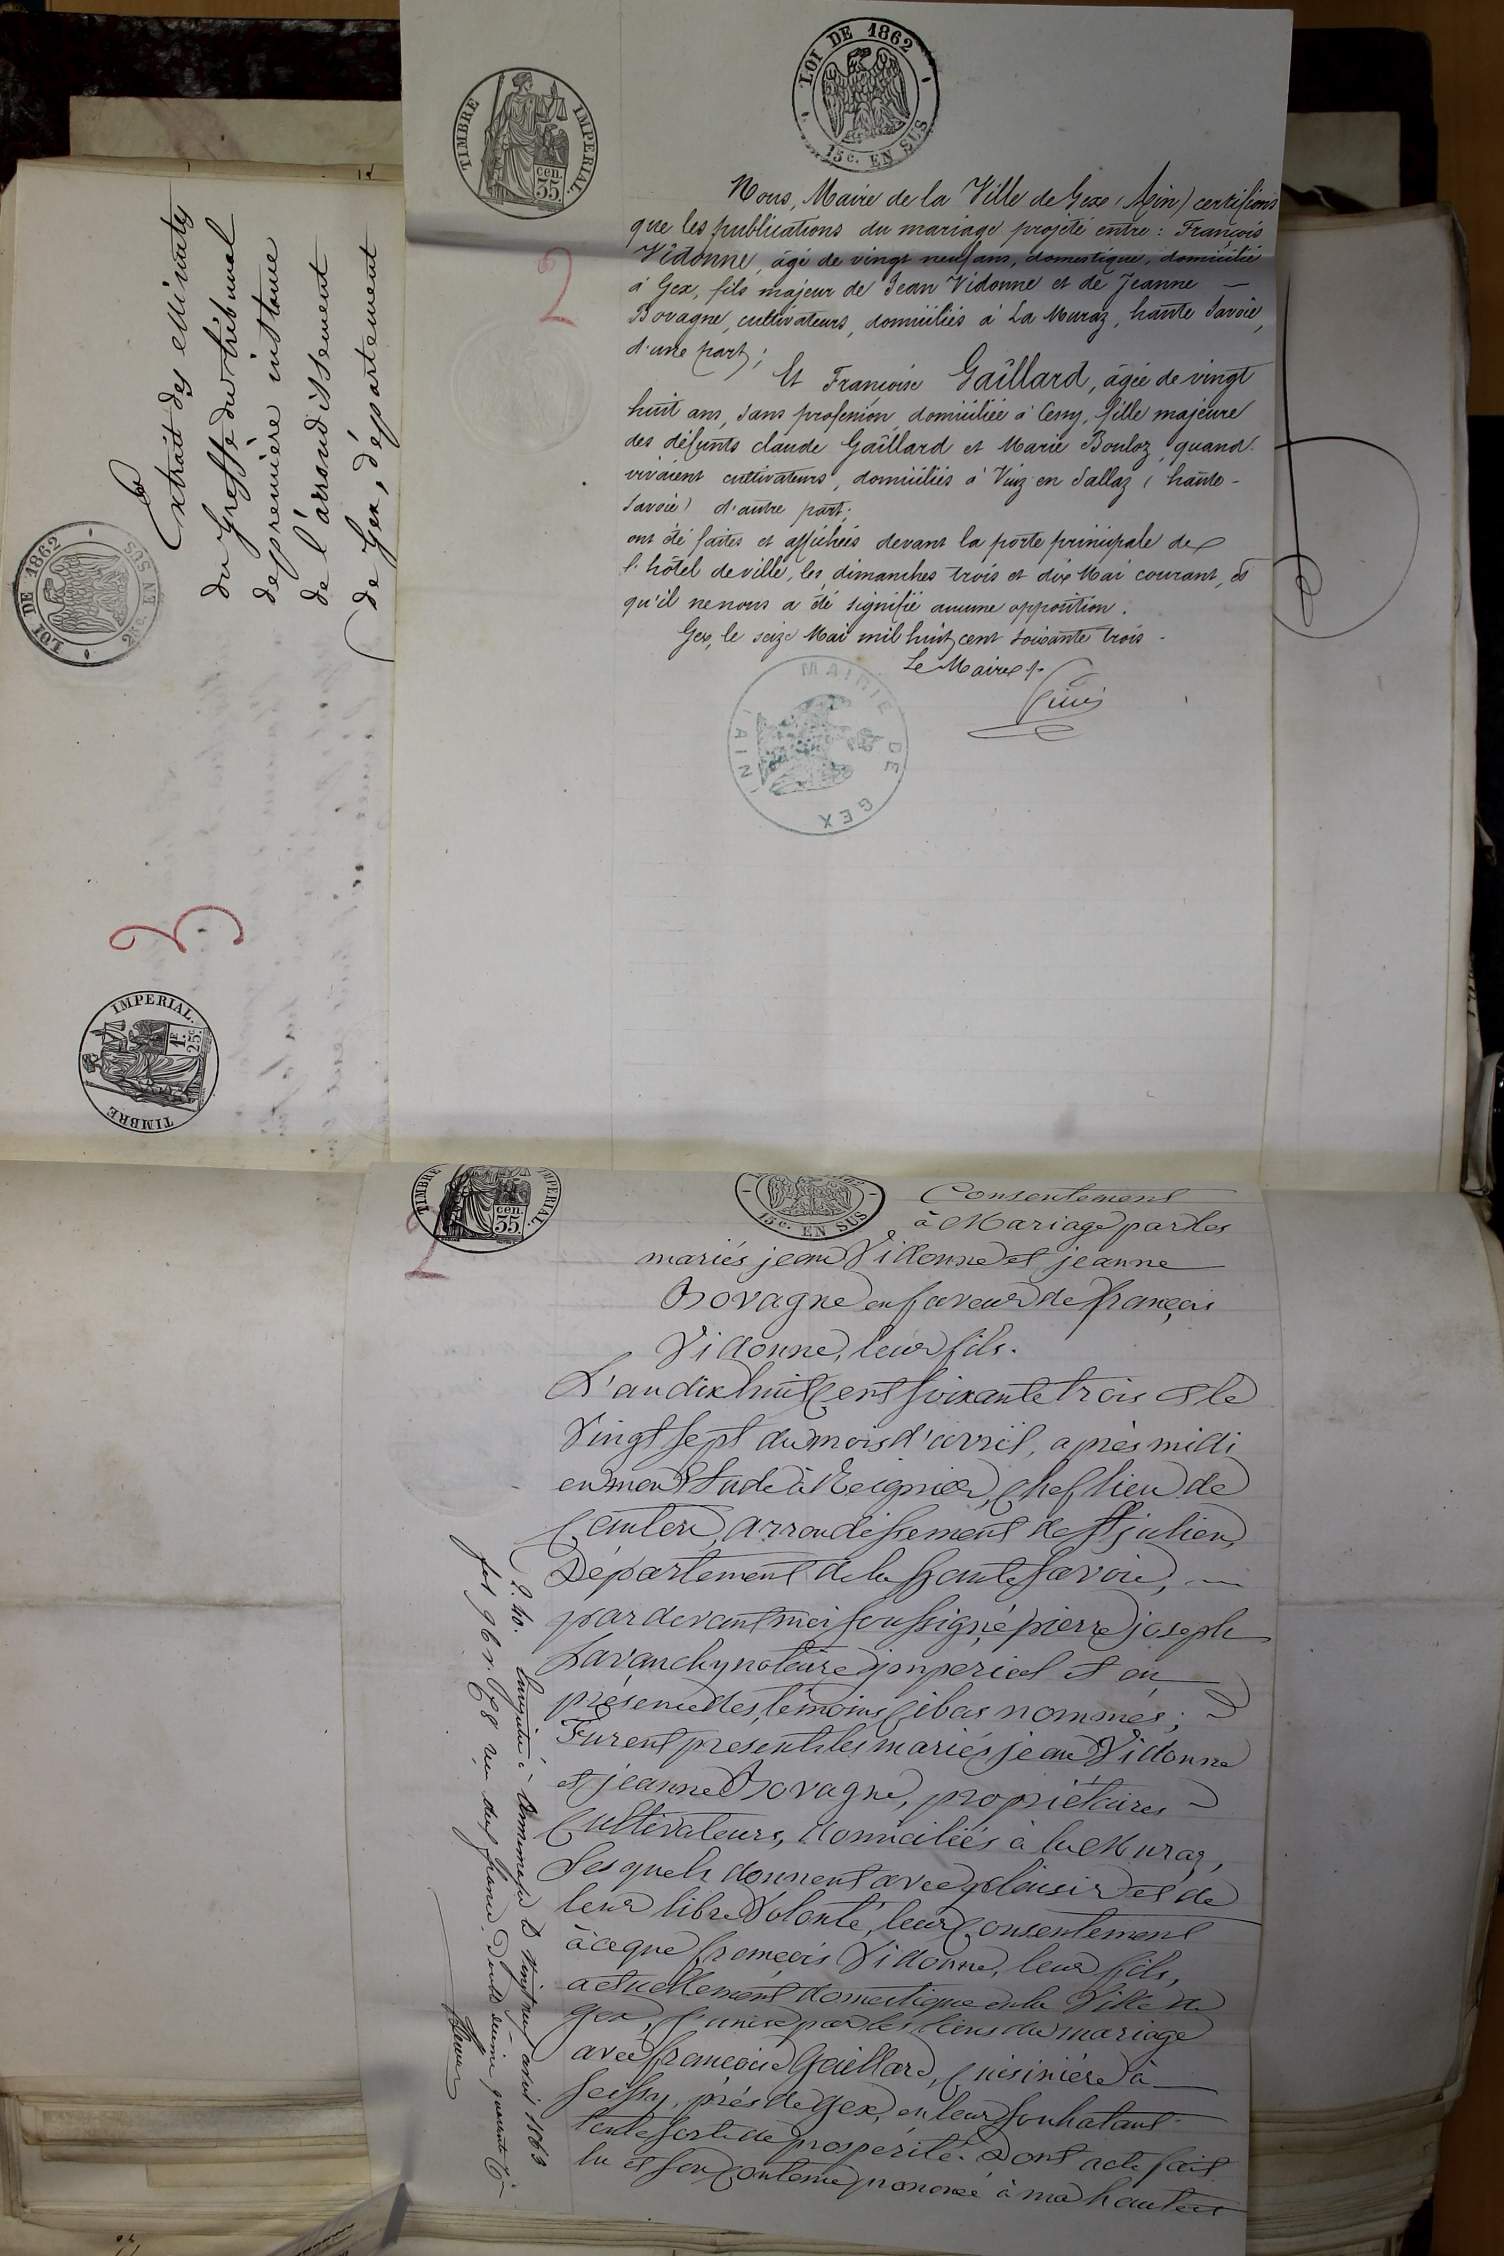 Extrait des Minutes
du Greffe du tribunal
de première instance
de l'arrondissement
de Gex, département
LOI DE 1862
EN SUS
3
TIMBRE IMPERIAL.
1F. 25c.
TIMBRE IMPERIAL.
35 cen.
LOI DE 1862
15c. EN SUS
2
Nous, Maire de la Ville de Gex (Ain) certifions
que les publications du mariage projeté entre : François
Vidonne, âgé de vingt neuf ans, domestique, domicilié
à Gex, fils majeur de Jean Vidonne et de Jeanne —
Bovagne, cultivateurs, domiciliés à La Muraz, haute Savoie,
d'une part;
Et Françoise Gaillard, âgée de vingt
huit ans, sans profession, domiciliée à Cessy, fille majeure
des défunts claude Gaillard et Marie Bouloz, quand
vivaient cultivateurs, domiciliés à Viuz en Sallaz (haute-
Savoie) d'autre part;
ont été faites et affichées devant la porte principale de
l'hôtel de ville, les dimanches trois et dix Mai courant, et
qu'il ne nous a été signifié aucune opposition.
Gex, le seize Mai mil huit cent soixante trois -
Le Maire
MAIRIE DE GEX
(AIN)
TIMBRE IMPERIAL.
cen. 35
15c. EN SUS
1
Consentement
à Mariage par les
mariés jean Vidonne et jeanne
Bovagne en faveur de françois
Vidonne, leur fils.
L'an dix huit Cent soixante trois et le
Vingt sept du mois d'avril, après midi
en mon Etude à Reignier, Chef lieu de
Canton, arrondissement de St julien,
Département de la haute Savoie, —
pardevant moi soussigné pierre joseph
Lavanchy notaire jmperial et en
présence des témoins Cibas nommés;
Furent présents les mariés jean Vidonne
et jeanne Bovagne, propriétaires -
Cultivateurs, domiciliés à la Muraz,
Lesquels donnent avec plaisir et de
leur libre Volonté, leur Consentement
à ce que françois Vidonne, leur fils,
actuellement domestique en la Ville de
Gex, s'unisse par les liens du mariage
avec françoise Gaillard, Cuisinière à
Seissy, près de Gex, en leur souhaitant
toute sorte de prospérité. Dont acte fait
lu et son Contenu prononcé à ma haute
Enregistré à Annemasse le vingt neuf avril 1863
f. 96 r. C. 8 reçu deux francs. Double décime quarante C.